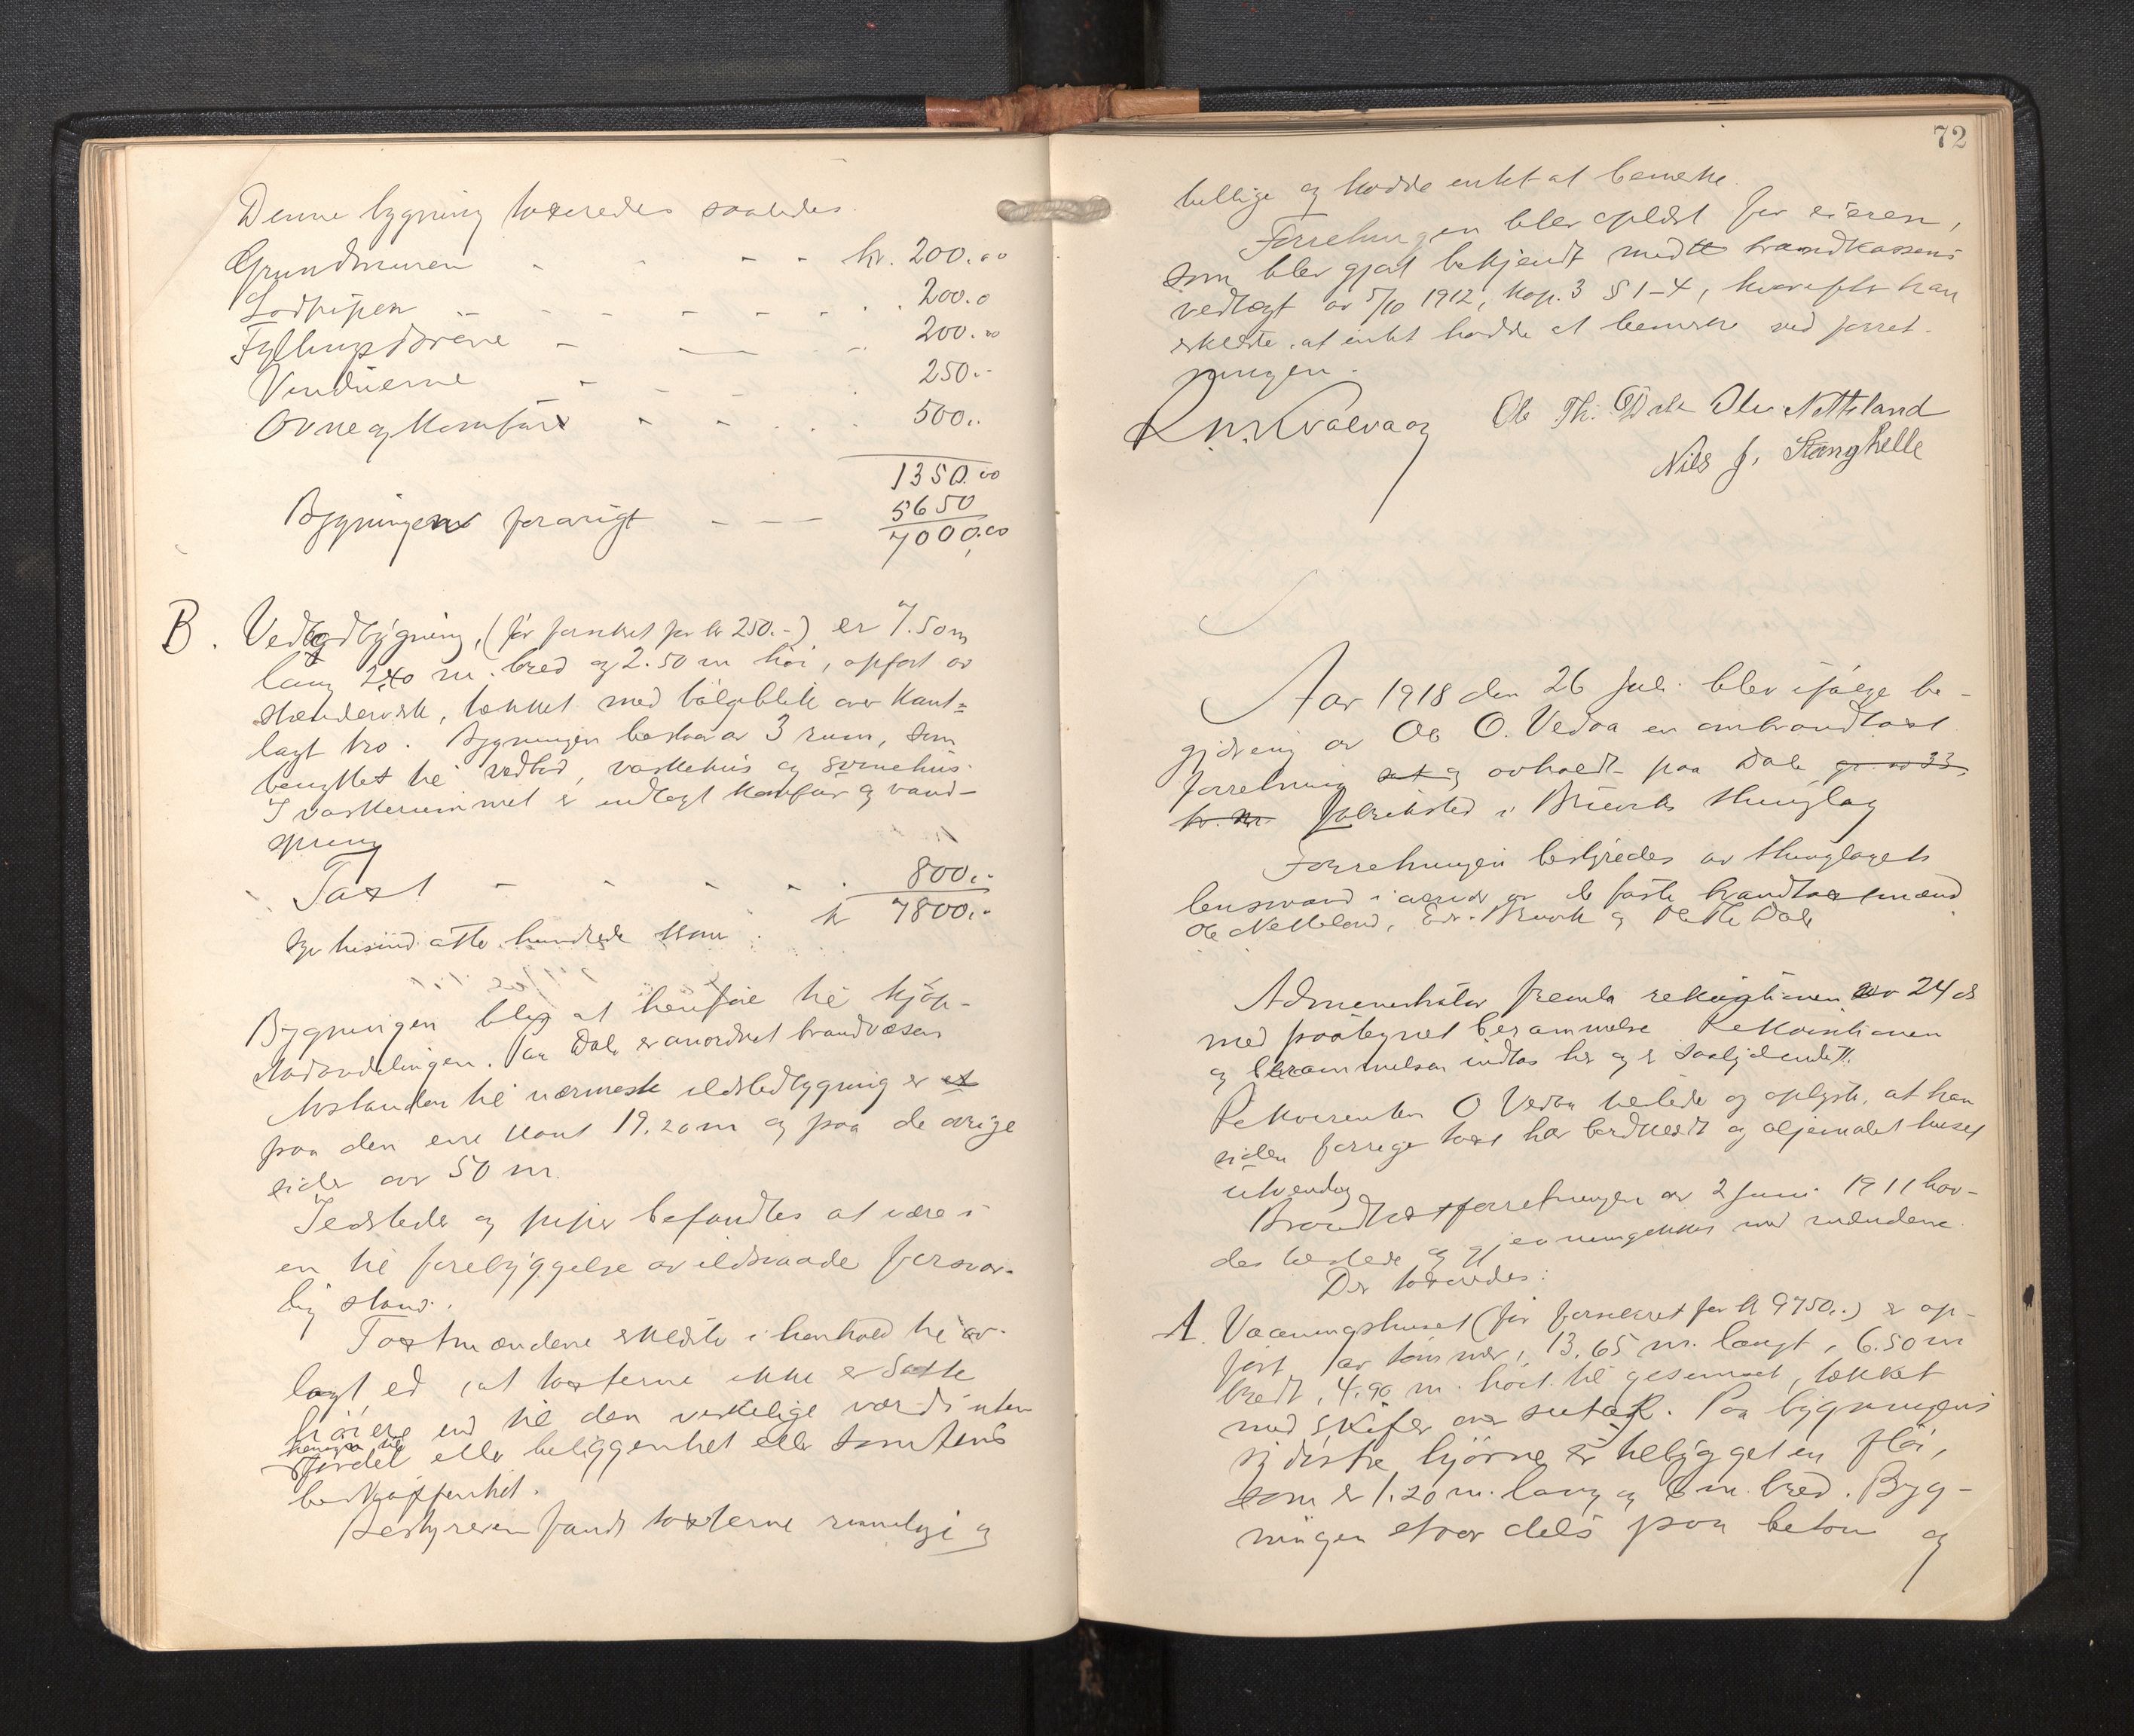 Denne bygning taxeredes saaledes.
Grundmuren - - - - kr. 200.00
Jordpipen - - - - - - 200.0
Fyllingsdørene - - - 200.00
Vinduerne - - - 250.-
Ovne og Komfur - - - 500.-
1350.00
Bygningen forøvrigt - - - 5650
7000.00
B. Vedbodbygning, (før forsikret for kr 250.-) er 7.50 m
lang 2.40 m. bred og 2.50 m høi, opført av
stænderverk, tækket med bølgeblik over kant-
lagt bro. Bygningen bestaar av 3 rum, som
benyttet til vedbod, vaskehus og svinehus.
I vaskerummet er indlagt komfur og vand-
spring
Taxt - - - - 800.-
kr 7800.-
Syv tusind otte hundrede kroner.
Bygningen blev at henføre til kjøp-
stadavdelingen. Paa Dale er anordnet brandvæsen
Avstanden til nærmeste ildstedbygning er
paa den ene kant 19.20 m og paa de øvrige
sider over 50 m.
Ildsteder og piper befandtes at være i
en til forebyggelse av ildsvaade forsvar-
lig stand.
Taxtmændene erklærte i henhold til av-
lagt ed, at taxterne ikke er satte
høiere end til den virkelige værdi uten
hensyn til
fordel eller beliggenhet eller tomtens
beskaffenhet.
Bestyreren fandt taxterne rimelige og
72
billige og hadde intet at bemerke.
Forretningen blev oplæst for eieren,
som blev gjort bekjendt med brandkassens
vedtægt av 5/10 1912, kap. 3 § 1-4, hvorefter han
erklærte at intet hadde at bemerke ved forret-
ningen.
R. M. Kvalvaag Ole Th. Dale Ole Netteland
Nils J. Stanghelle
Aar 1918 den 26 juli blev ifølge be-
gjæring av Ole O. Vedaa en ombrandtaxt
forretning sat og avholdt paa Dale gr. no 33,
br. no. fabriksted i Bruvik thinglag
Forretningen bestyredes av thinglagets
lensmand i nærvær av de faste brandtaxtmænd
Ole Netteland, Edv. Bruvik og Ole Th Dale
Administrator fremla rekvisitionen av 24 ds
med paategnet berammelse. Rekvisitionen
og berammelsen indtas her og er saalydende:
Rekvirenten O Vedaa tilstede og oplyste, at han
siden forrige taxt har bordklædt og oljemalet huset
utvendig
Brandtaxtforretningen av 2 juni 1911 hav-
des tilstede og gjennemgikkes med mændene.
Der taxeredes:
A. Vaaningshuset (før forsikret for kr 9750.-) er op-
ført av tømmer, 13.65 m. langt, 6.50 m
bredt, 4.90 m. høit til gesimset, tækket
med skifer over sutak. Paa bygningens
sydøstre hjørne er tilbygget en fløi,
som er 1.20 m. lang og 6 m. bred. Byg-
ningen staar dels paa beton og